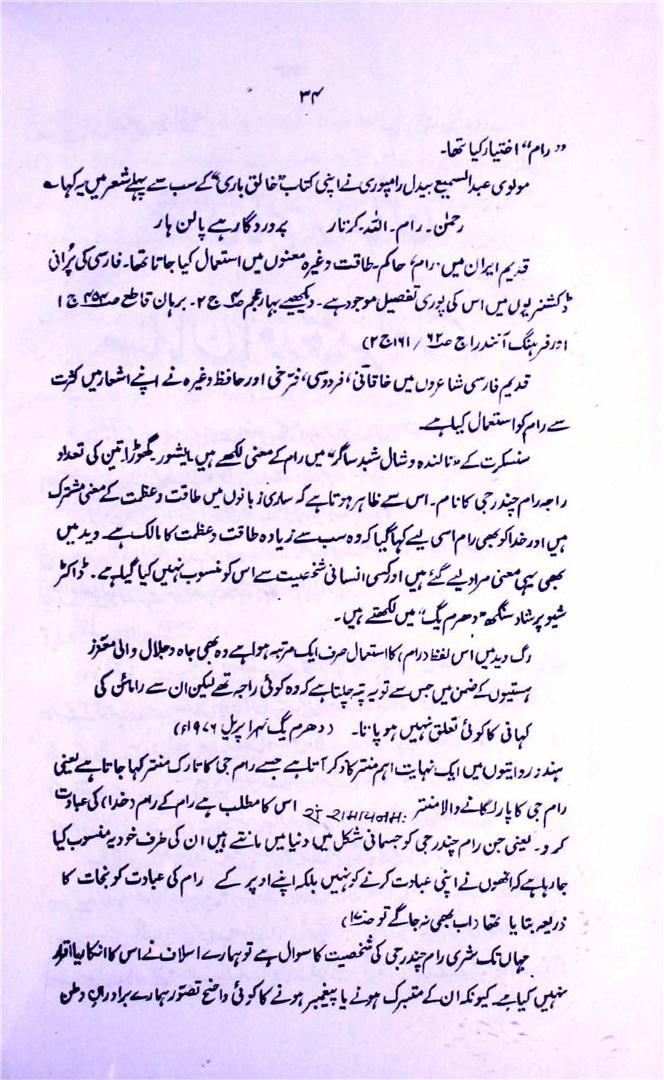 ۳۴
"رام" اختیار کیا تھا۔
مولوی عبدالسمیع بیدل رامپوری نے اپنی کتاب "خالق باری" کے سب سے پہلے شعر میں یہ کہا ہے
رحمٰن۔ رام۔ اللہ۔ کرنار پروردگار ہے پالن ہار
قدیم ایران میں "رام" حاکم۔ طاقت وغیرہ معنوں میں استعمال کیا جاتا تھا۔ فارسی کی پُرانی
ڈکشنریوں میں اس کی پوری تفصیل موجود ہے۔ دیکھیے بہار عجم ج ۲۔ برہان قاطع ج ۱
اور فرہنگ آنند راج ص ۶۲ / ۱۶۱ ج ۲)
قدیم فارسی شاعروں میں خاقانی، فردوسی، فرخی اور حافظ وغیرہ نے اپنے اشعار میں کثرت
سے رام کو استعمال کیا ہے۔
سنسکرت کے "نالندہ وشال شبد ساگر" میں رام کے معنی لکھے ہیں ایشور، گھوڑا، تین کی تعداد
راجہ رام چندر جی کا نام۔ اس سے ظاہر ہوتا ہے کہ ساری زبانوں میں طاقت وعظمت کے معنی مشترک
ہیں اور خدا کو بھی رام اسی لیے کہا گیا کہ وہ سب سے زیادہ طاقت وعظمت کا مالک ہے۔ وید میں
بھی یہی معنی مراد لیے گئے ہیں اور کسی انسانی شخصیت سے اس کو منسوب نہیں کیا گیا ہے۔ ڈاکٹر
شیو پرشاد سنگھ "دھرم یگ" میں لکھتے ہیں۔
رگ وید میں اس لفظ (رام) کا استعمال صرف ایک مرتبہ ہوا ہے وہ بھی جاہ وجلال والی معزز
ہستیوں کے ضمن میں جس سے تو یہ پتہ چلتا ہے کہ وہ کوئی راجہ تھے لیکن ان سے رامائن کی
کہانی کا کوئی تعلق نہیں ہو پاتا۔ (دھرم یگ اپریل ۱۹۷۶ء)
ہندو روایتوں میں ایک نہایت اہم منتر کا ذکر آتا ہے جسے رام جی کا تارک منتر کہا جاتا ہے یعنی
رام جی کا پار لگانے والا منتر रां रामायनमः اس کا مطلب ہے رام کے رام (خدا) کی عبادت
کرو۔ یعنی جن رام چندر جی کو جسمانی شکل میں دنیا میں مانتے ہیں ان کی طرف خود یہ منسوب کیا
جا رہا ہے کہ انھوں نے اپنی عبادت کرنے کو نہیں بلکہ اپنے اوپر کے رام کی عبادت کو نجات کا
ذریعہ بتایا تھا (اب بھی نہ جاگے تو ص ۱۷)
جہاں تک شری رام چندر جی کی شخصیت کا سوال ہے تو ہمارے اسلاف نے اس کا انکار یا اقرار
نہیں کیا ہے۔ کیونکہ ان کے متبرک ہونے یا پیغمبر ہونے کا کوئی واضح تصور ہمارے برادرانِ وطن